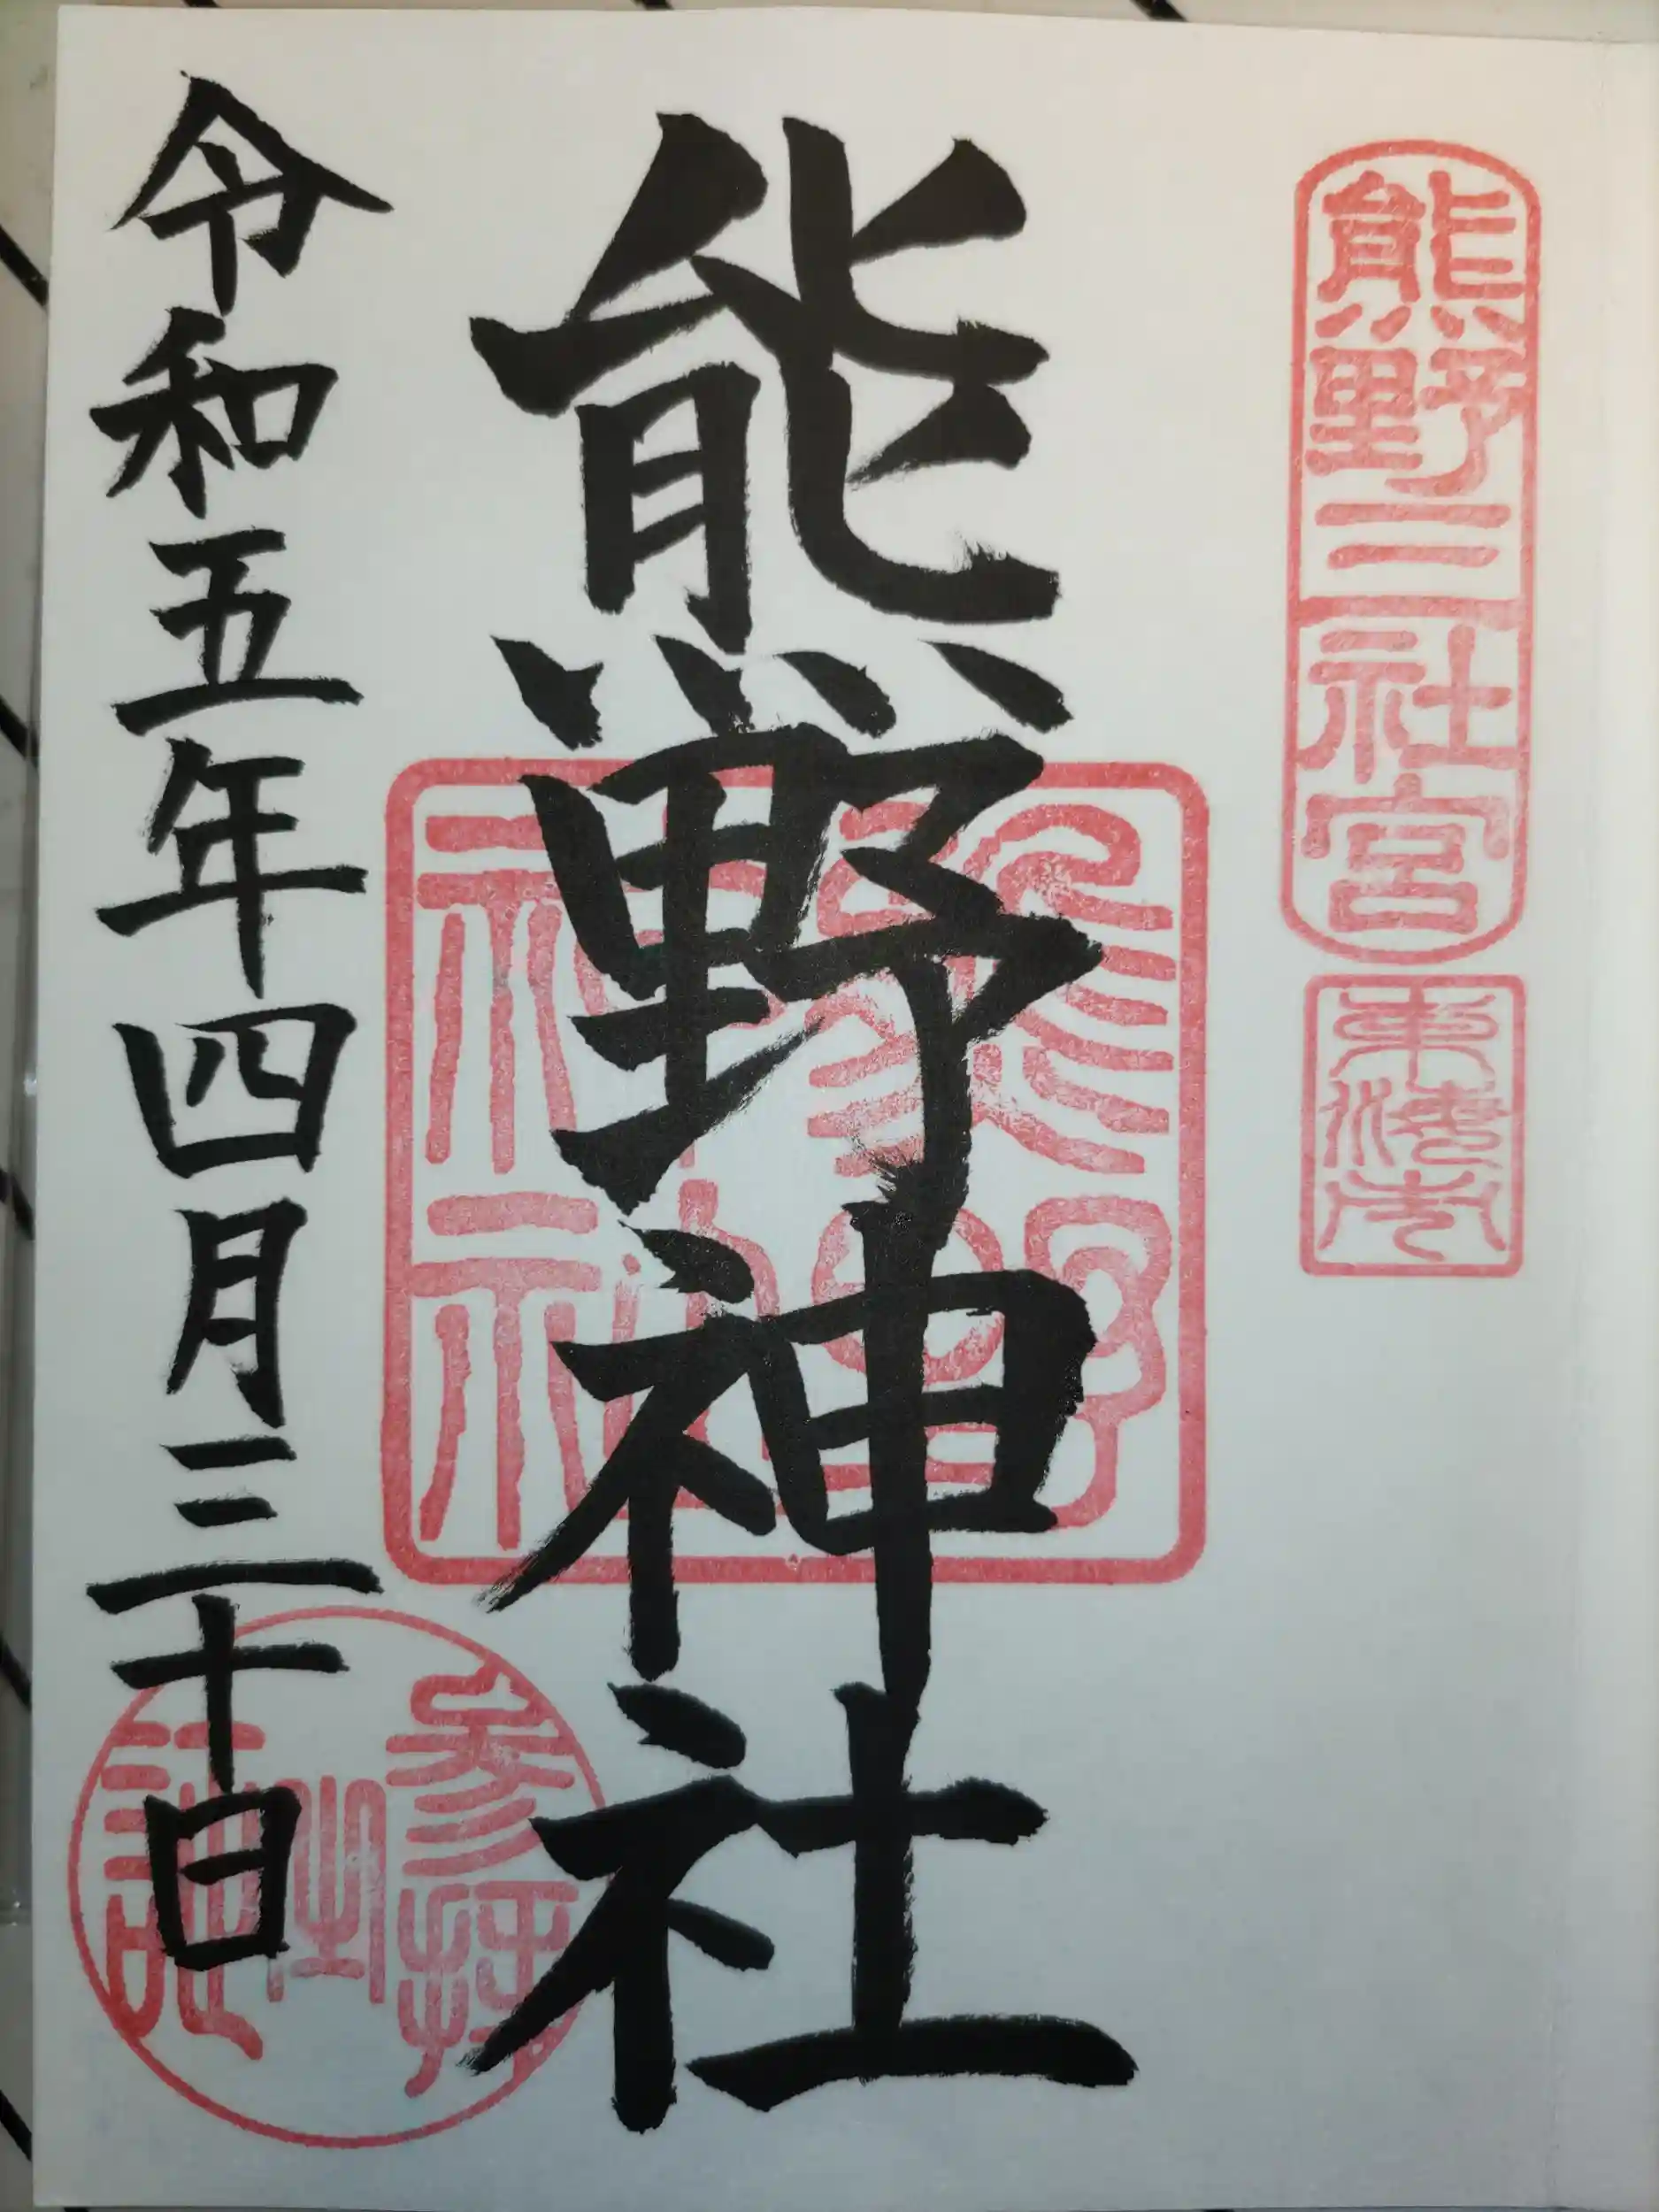 熊野三社宮
東海市
熊野神社
熊野
神社
令和五年四月三十日
参拝
之
記